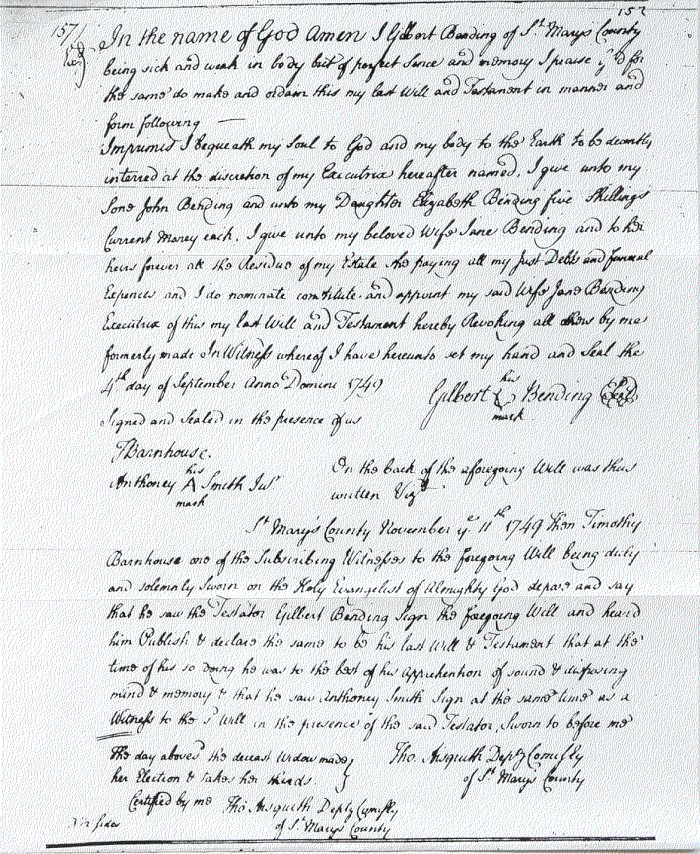 152
157
In the name of God Amen I Gilbert Bending of St. Marys County
being sick and weak in body but of perfect Sence and memory I praise ye Ld for
the same do make and ordain this my last Will and Testament in manner and
form following —
Imprimis I bequeath my Soul to God and my body to the Earth to be decently
interred at the discretion of my Executrix hereafter named, I give unto my
Sone John Bending and unto my Daughter Elizabeth Bending five Shillings
Current Money each. I give unto my beloved Wife Jane Bending and to her
heirs forever all the Residue of my Estate she paying all my Just Debts and funeral
Expences and I do nominate constitute and appoint my said Wife Jane Bending
Executrix of this my last Will and Testament hereby Revoking all others by me
formerly made In Witness whereof I have hereunto set my hand and Seal the
4th day of September Anno Domini 1749 Gilbert his mark Bending Seal
Signed and Sealed in the presence of us
TBarnhouse.
Anthoney his A mark Smith Junr
On the back of the aforegoing Will was thus
written Vizt
St. Mary's County November ye 11th 1749 Then Timothy
Barnhouse one of the Subscribing Witnesses to the foregoing Will being duty
and solemnly Sworn on the Holy Evangelist of Almighty God depose and say
that he saw the Testator Gilbert Bending Sign the foregoing Will and heard
him Publish & declare the same to be his last Will & Testament that at the
time of his so doing he was to the best of his apprehention of sound & disposing
mind & memory & that he saw Anthoney Smith Sign at the same time as a
Witness to the sd Will in the presence of the said Testator, Sworn to before me
The day above the deceast Widow made
her Election & takes her thirds.
Tho. Aisquith Depty Comisry
of St. Mary's County
Certified by me Tho. Aisquith Depty Comisry
of St. Mary's County